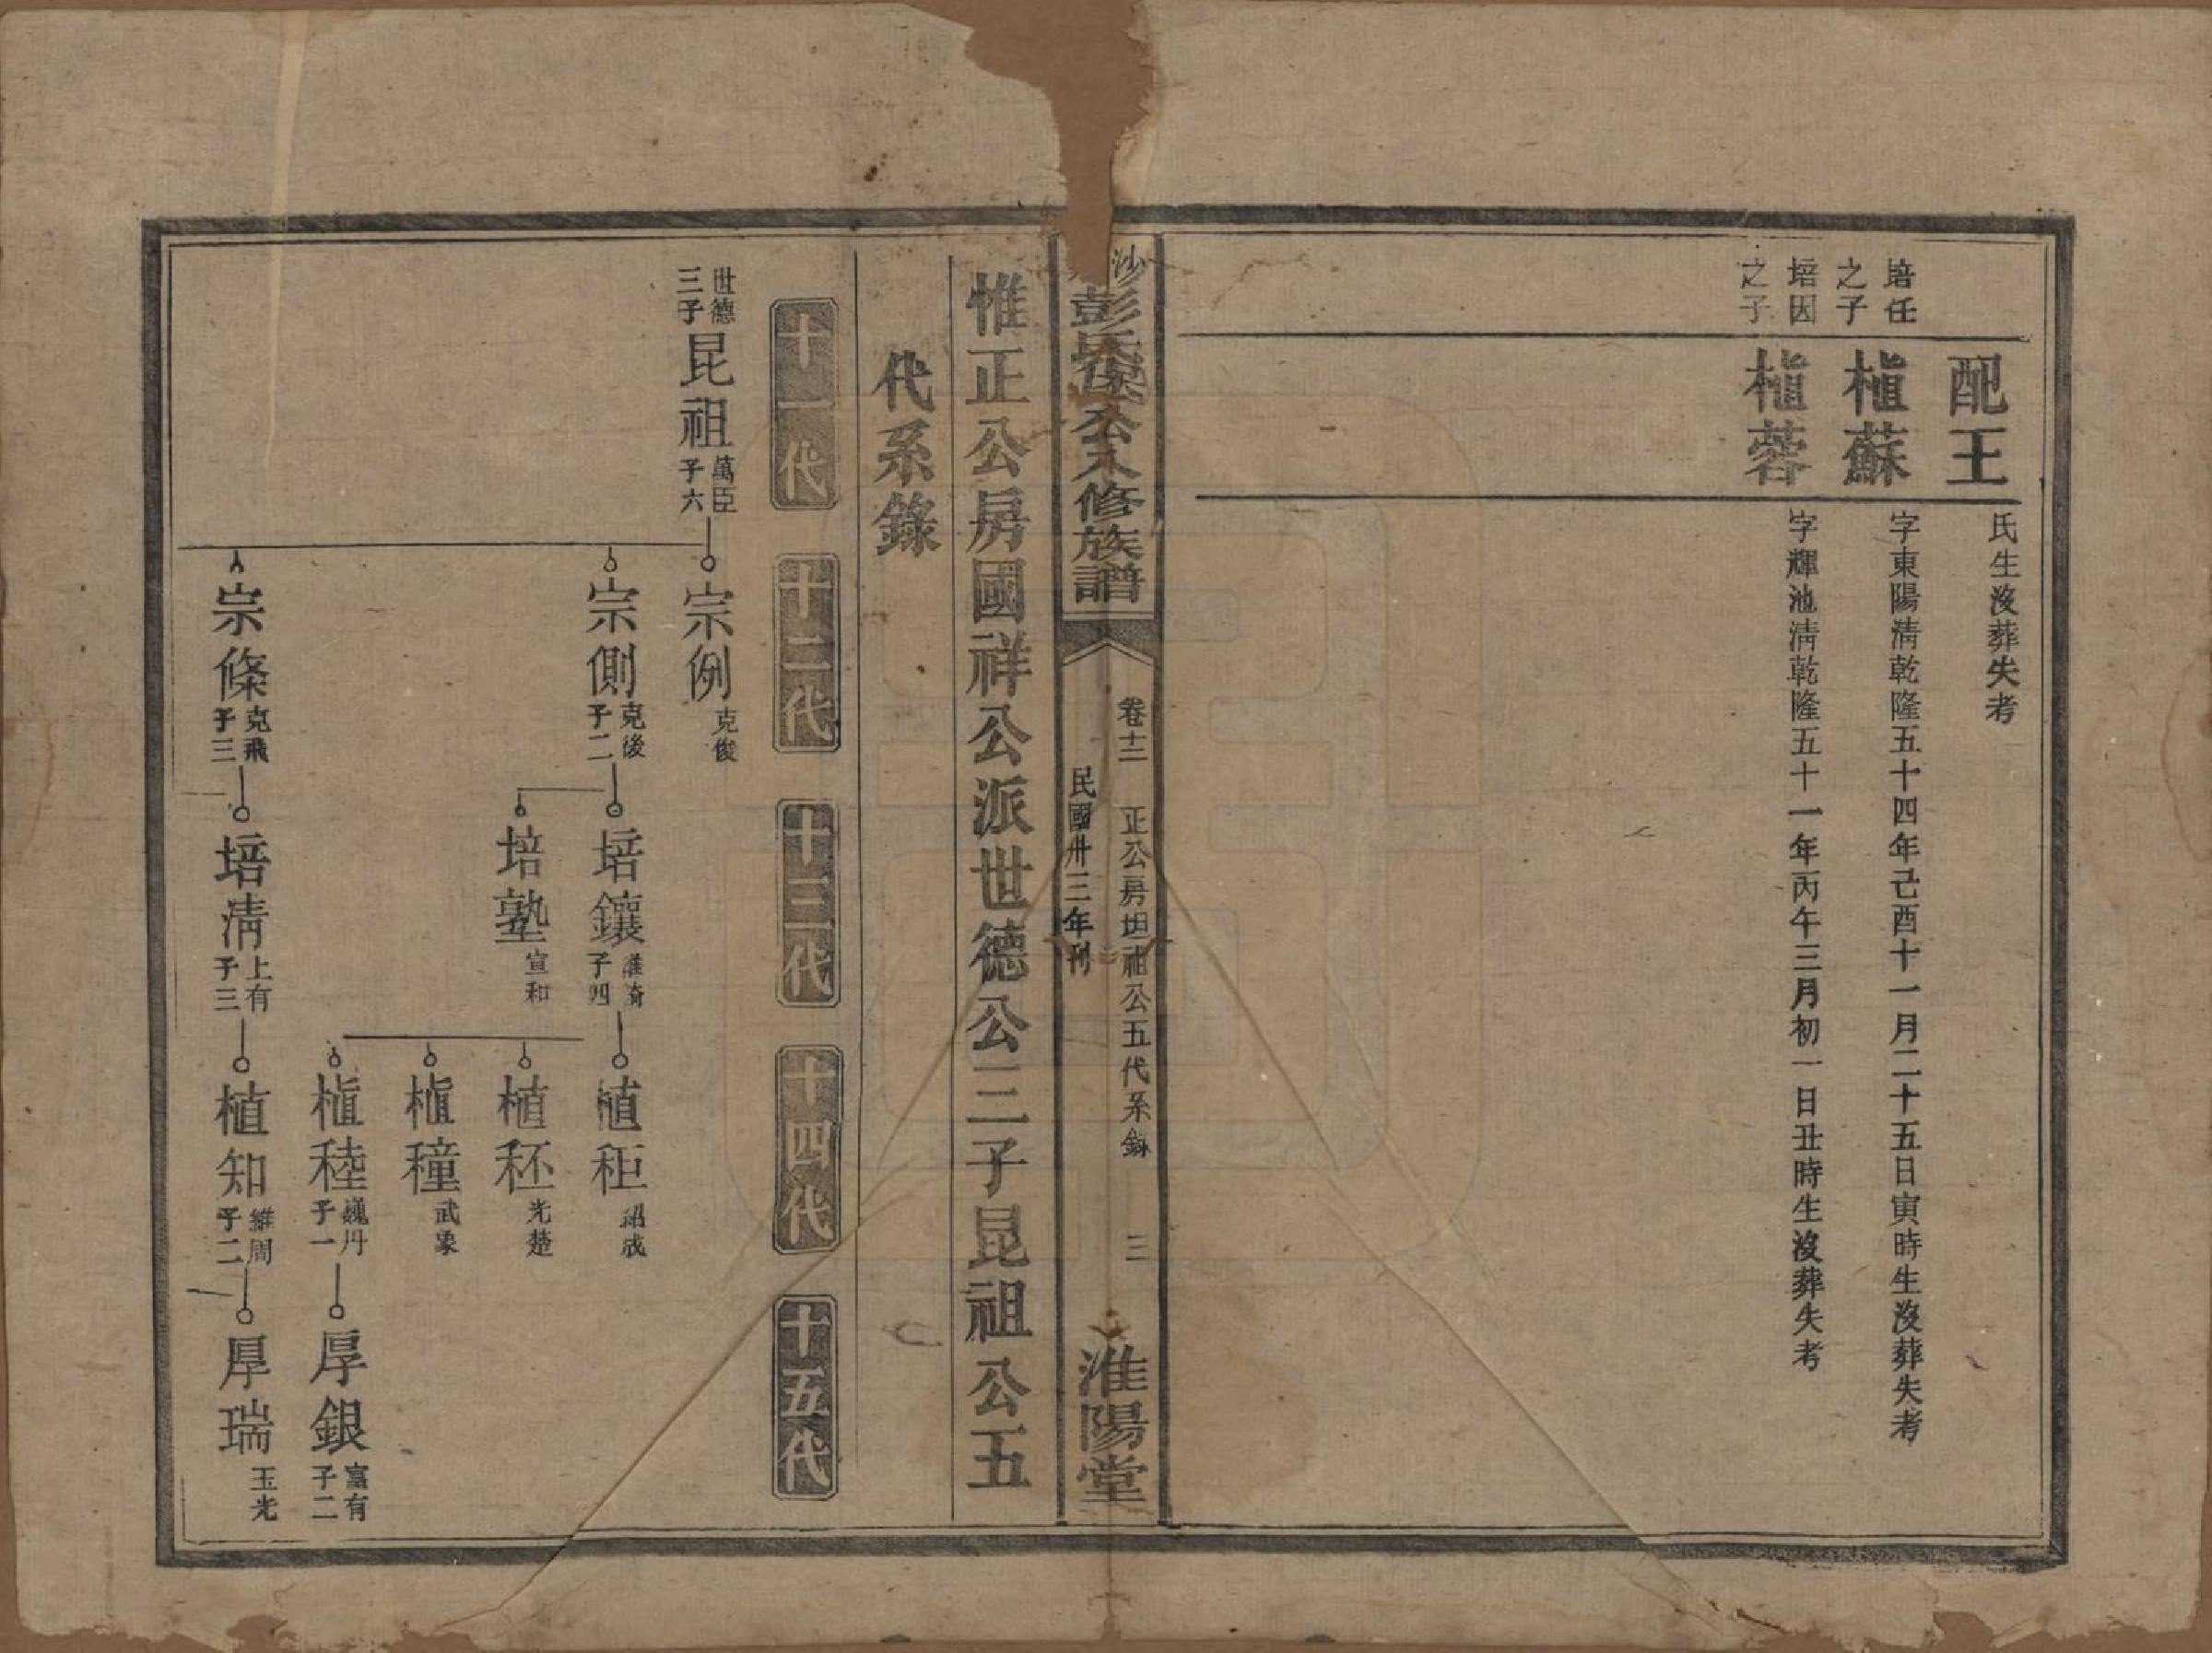 配王
氏生沒葬失考
培任之子
植蘇
字東陽清乾隆五十四年己酉十一月二十五日寅時生沒葬失考
培因之子
植蓉
字輝池清乾隆五十一年丙午三月初一日丑時生沒葬失考
沙
彭氏
公八修族譜
卷十二
正公房坦祖公五代系錄
三
民國卅三年刊
淮陽堂
惟正公房國祥公派世德公三子昆祖公五
代系錄
十一代
十二代
十三代
十四代
十五代
世德三子
昆祖
萬臣
子六
宗例
克俊
宗側
克後
子二
培鑲
子四
植秬
紹成
植秠
光楚
植穜
武象
植稑
巍丹
子一
厚銀
富有
子二
培塾
宣和
宗條
克飛
子三
培清
上有
子三
植知
維周
子二
厚瑞
玉光